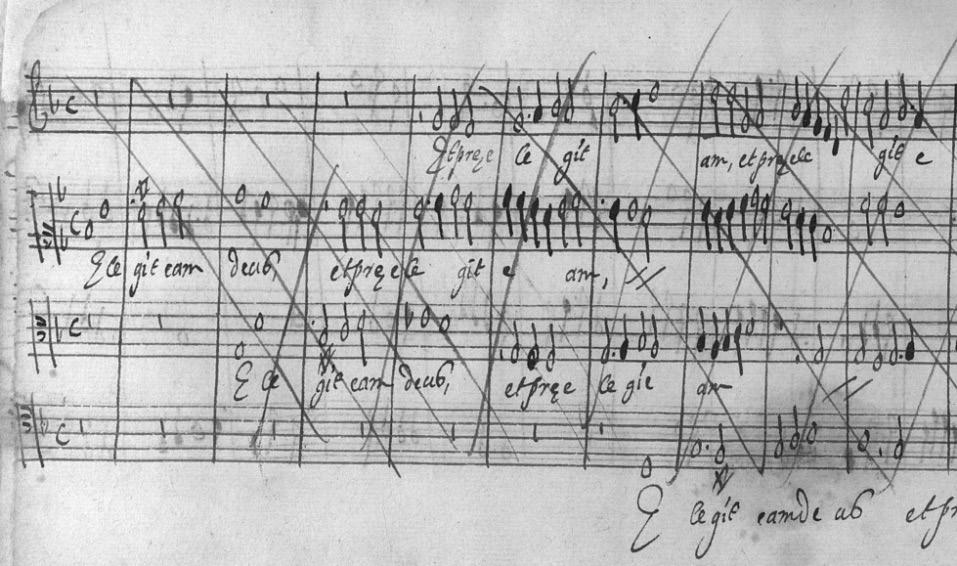 Et pręe le git am, et pręele git e
E le git eam deus, et pręe le git e am, //
E le git eam deus, et pręe le gie am //
E le git eam de us et pr